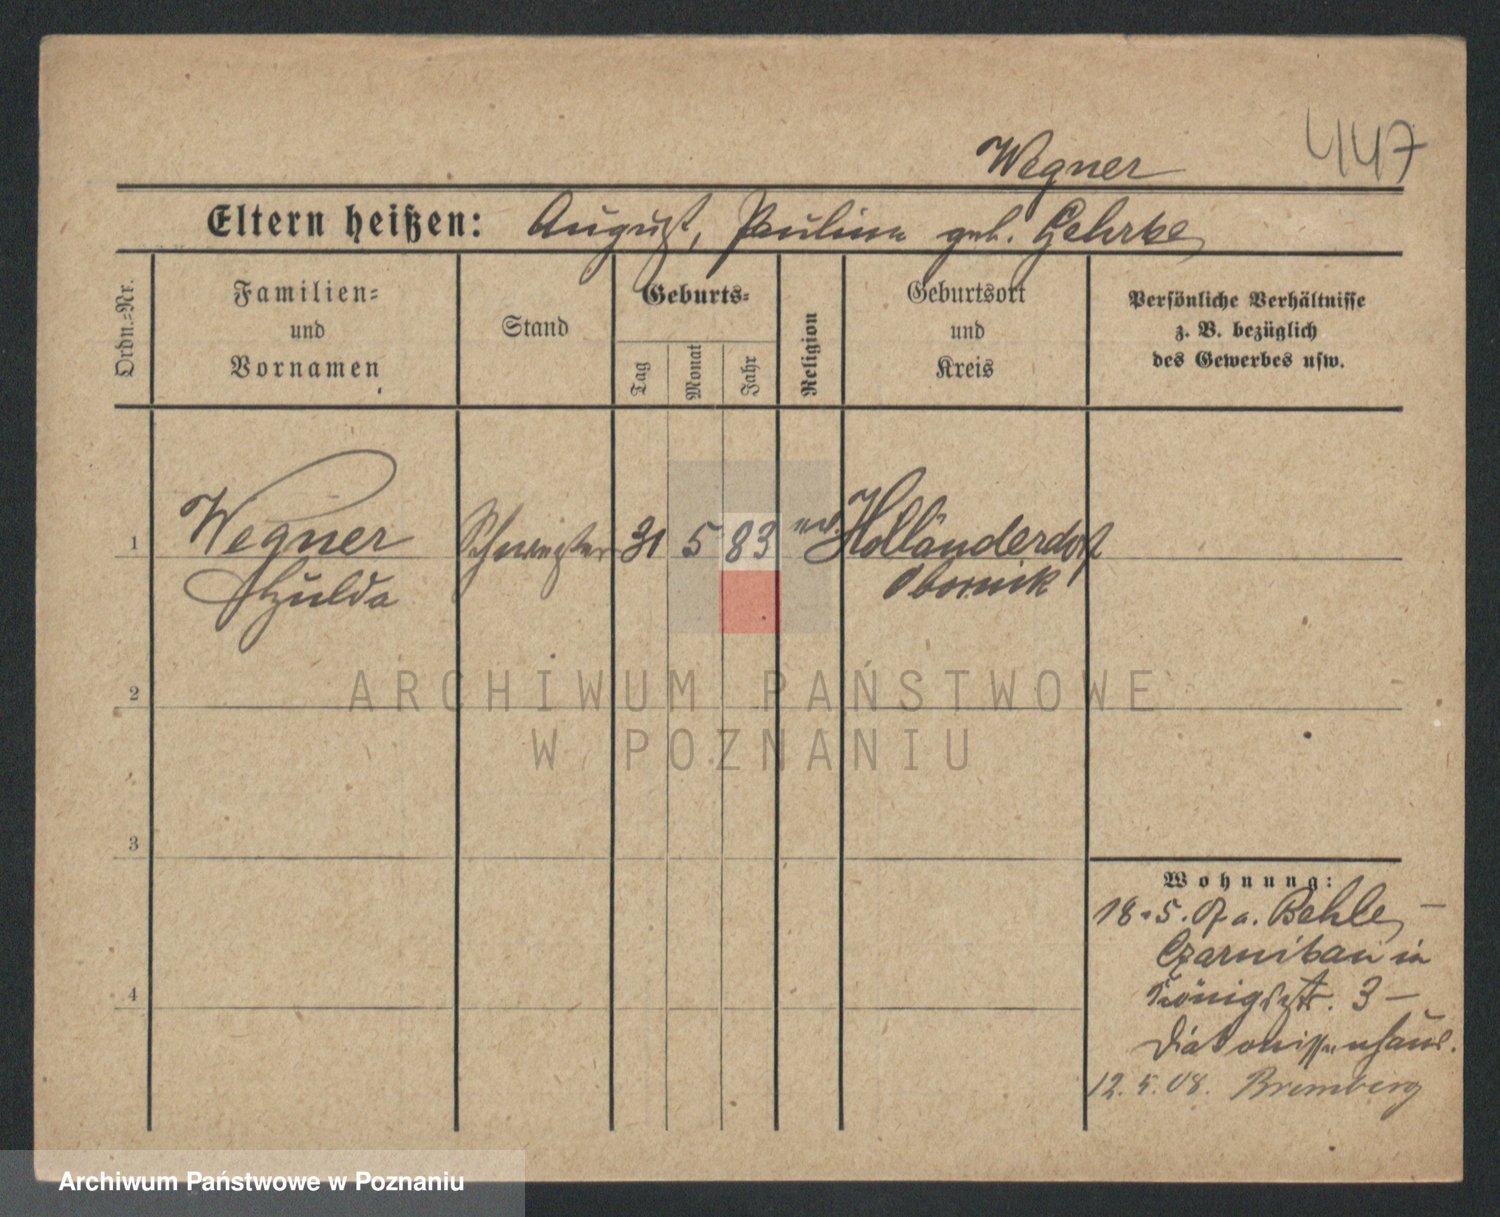 447
Wegner
Eltern heißen: August, Pauline geb. Gehrke
Ordn.=Nr.
Familien=
und
Vornamen
Stand
Geburts=
Tag
Monat
Jahr
Religion
Geburtsort
und
Kreis
Persönliche Verhältnisse
z. B. bezüglich
des Gewerbes usw.
1
Wegner
Hulda
Schwester
31
5
83
Holländerdorf
Obornik
2
3
4
ARCHIWUM PAŃSTWOWE
W POZNANIU
Wohnung:
18.5. a. Behle,
Czarnikau in
Königstr. 3 –
Diakonissenhaus.
12. 5. 08. Bromberg
Archiwum Państwowe w Poznaniu